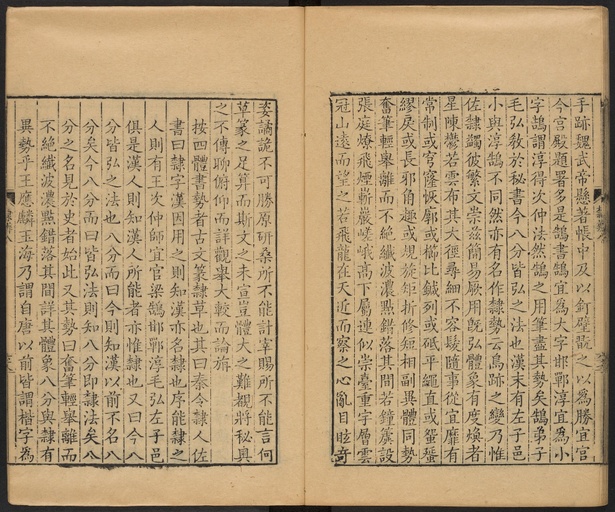 手跡魏武帝懸著帳中及以釘壁翫之以為勝宜官
今宮殿題署多是鵠書鵠宜為大字邯鄲淳宜為小
字鵠謂淳得次仲法然鵠之用筆盡其勢矣鵠弟子
毛弘教於秘書今八分皆弘之法也漢末有左子邑
小與淳鵠不同然亦有名作隸勢云鳥跡之變乃惟
佐隸蠲彼繁文崇茲簡易厥用旣弘體象有度煥若
星陳鬱若雲布其大徑尋細不容髮隨事從宜靡有
常制或穹窿恢廓或櫛比鍼列或砥平繩直或蜿蜒
繆戾或長邪角趣或規旋矩折修短相副異體同勢
奮筆輕舉離而不絕纖波濃點錯落其間若鐘虡設
張庭燎飛煙嶄巖嵯峨高下屬連似崇臺重宇層雲
冠山遠而望之若飛龍在天近而察之心亂目眩奇
姿譎詭不可勝原研桑所不能計宰賜所不能言何
草篆之足算而斯文之未宣豈體大之難覩將秘奧
之不傳聊俯仰而詳觀舉大較而論旃
按四體書勢者古文篆隸草也其曰秦令隸人佐
書曰隸字漢因用之則知漢亦名隸也序能隸之
人則有王次仲師宜官梁鵠邯鄲淳毛弘左子邑
俱是漢人則知漢人所能者亦惟隸也又曰今八
分皆弘之法也八分而曰今則知漢以前不名八
分矣今八分而曰皆弘法則知八分即隸法矣八
分之名見於史者始此又其勢曰奮筆輕舉離而
不絕纖波濃點錯落其間詳其體象八分與隸有
異勢乎王應麟玉海乃謂自唐以前皆謂楷字為